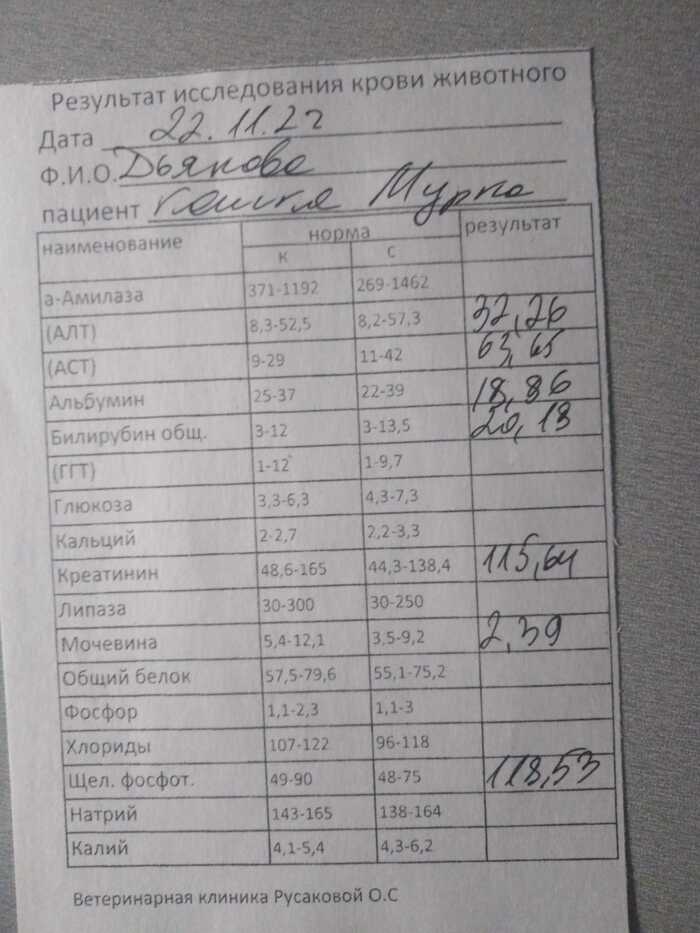 Результат исследования крови животного
Дата 22.11.22
Ф.И.О. Дьякова
пациент кошка Мурка
наименование норма результат
к с
а-Амилаза 371-1192 269-1462
(АЛТ) 8,3-52,5 8,2-57,3 32,26
(АСТ) 9-29 11-42 63,65
Альбумин 25-37 22-39 18,86
Билирубин общ. 3-12 3-13,5 20,18
(ГГТ) 1-12 1-9,7
Глюкоза 3,3-6,3 4,3-7,3
Кальций 2-2,7 2,2-3,3
Креатинин 48,6-165 44,3-138,4 115,64
Липаза 30-300 30-250
Мочевина 5,4-12,1 3,5-9,2 2,39
Общий белок 57,5-79,6 55,1-75,2
Фосфор 1,1-2,3 1,1-3
Хлориды 107-122 96-118
Щел. фосфот. 49-90 48-75 118,53
Натрий 143-165 138-164
Калий 4,1-5,4 4,3-6,2
Ветеринарная клиника Русаковой О.С